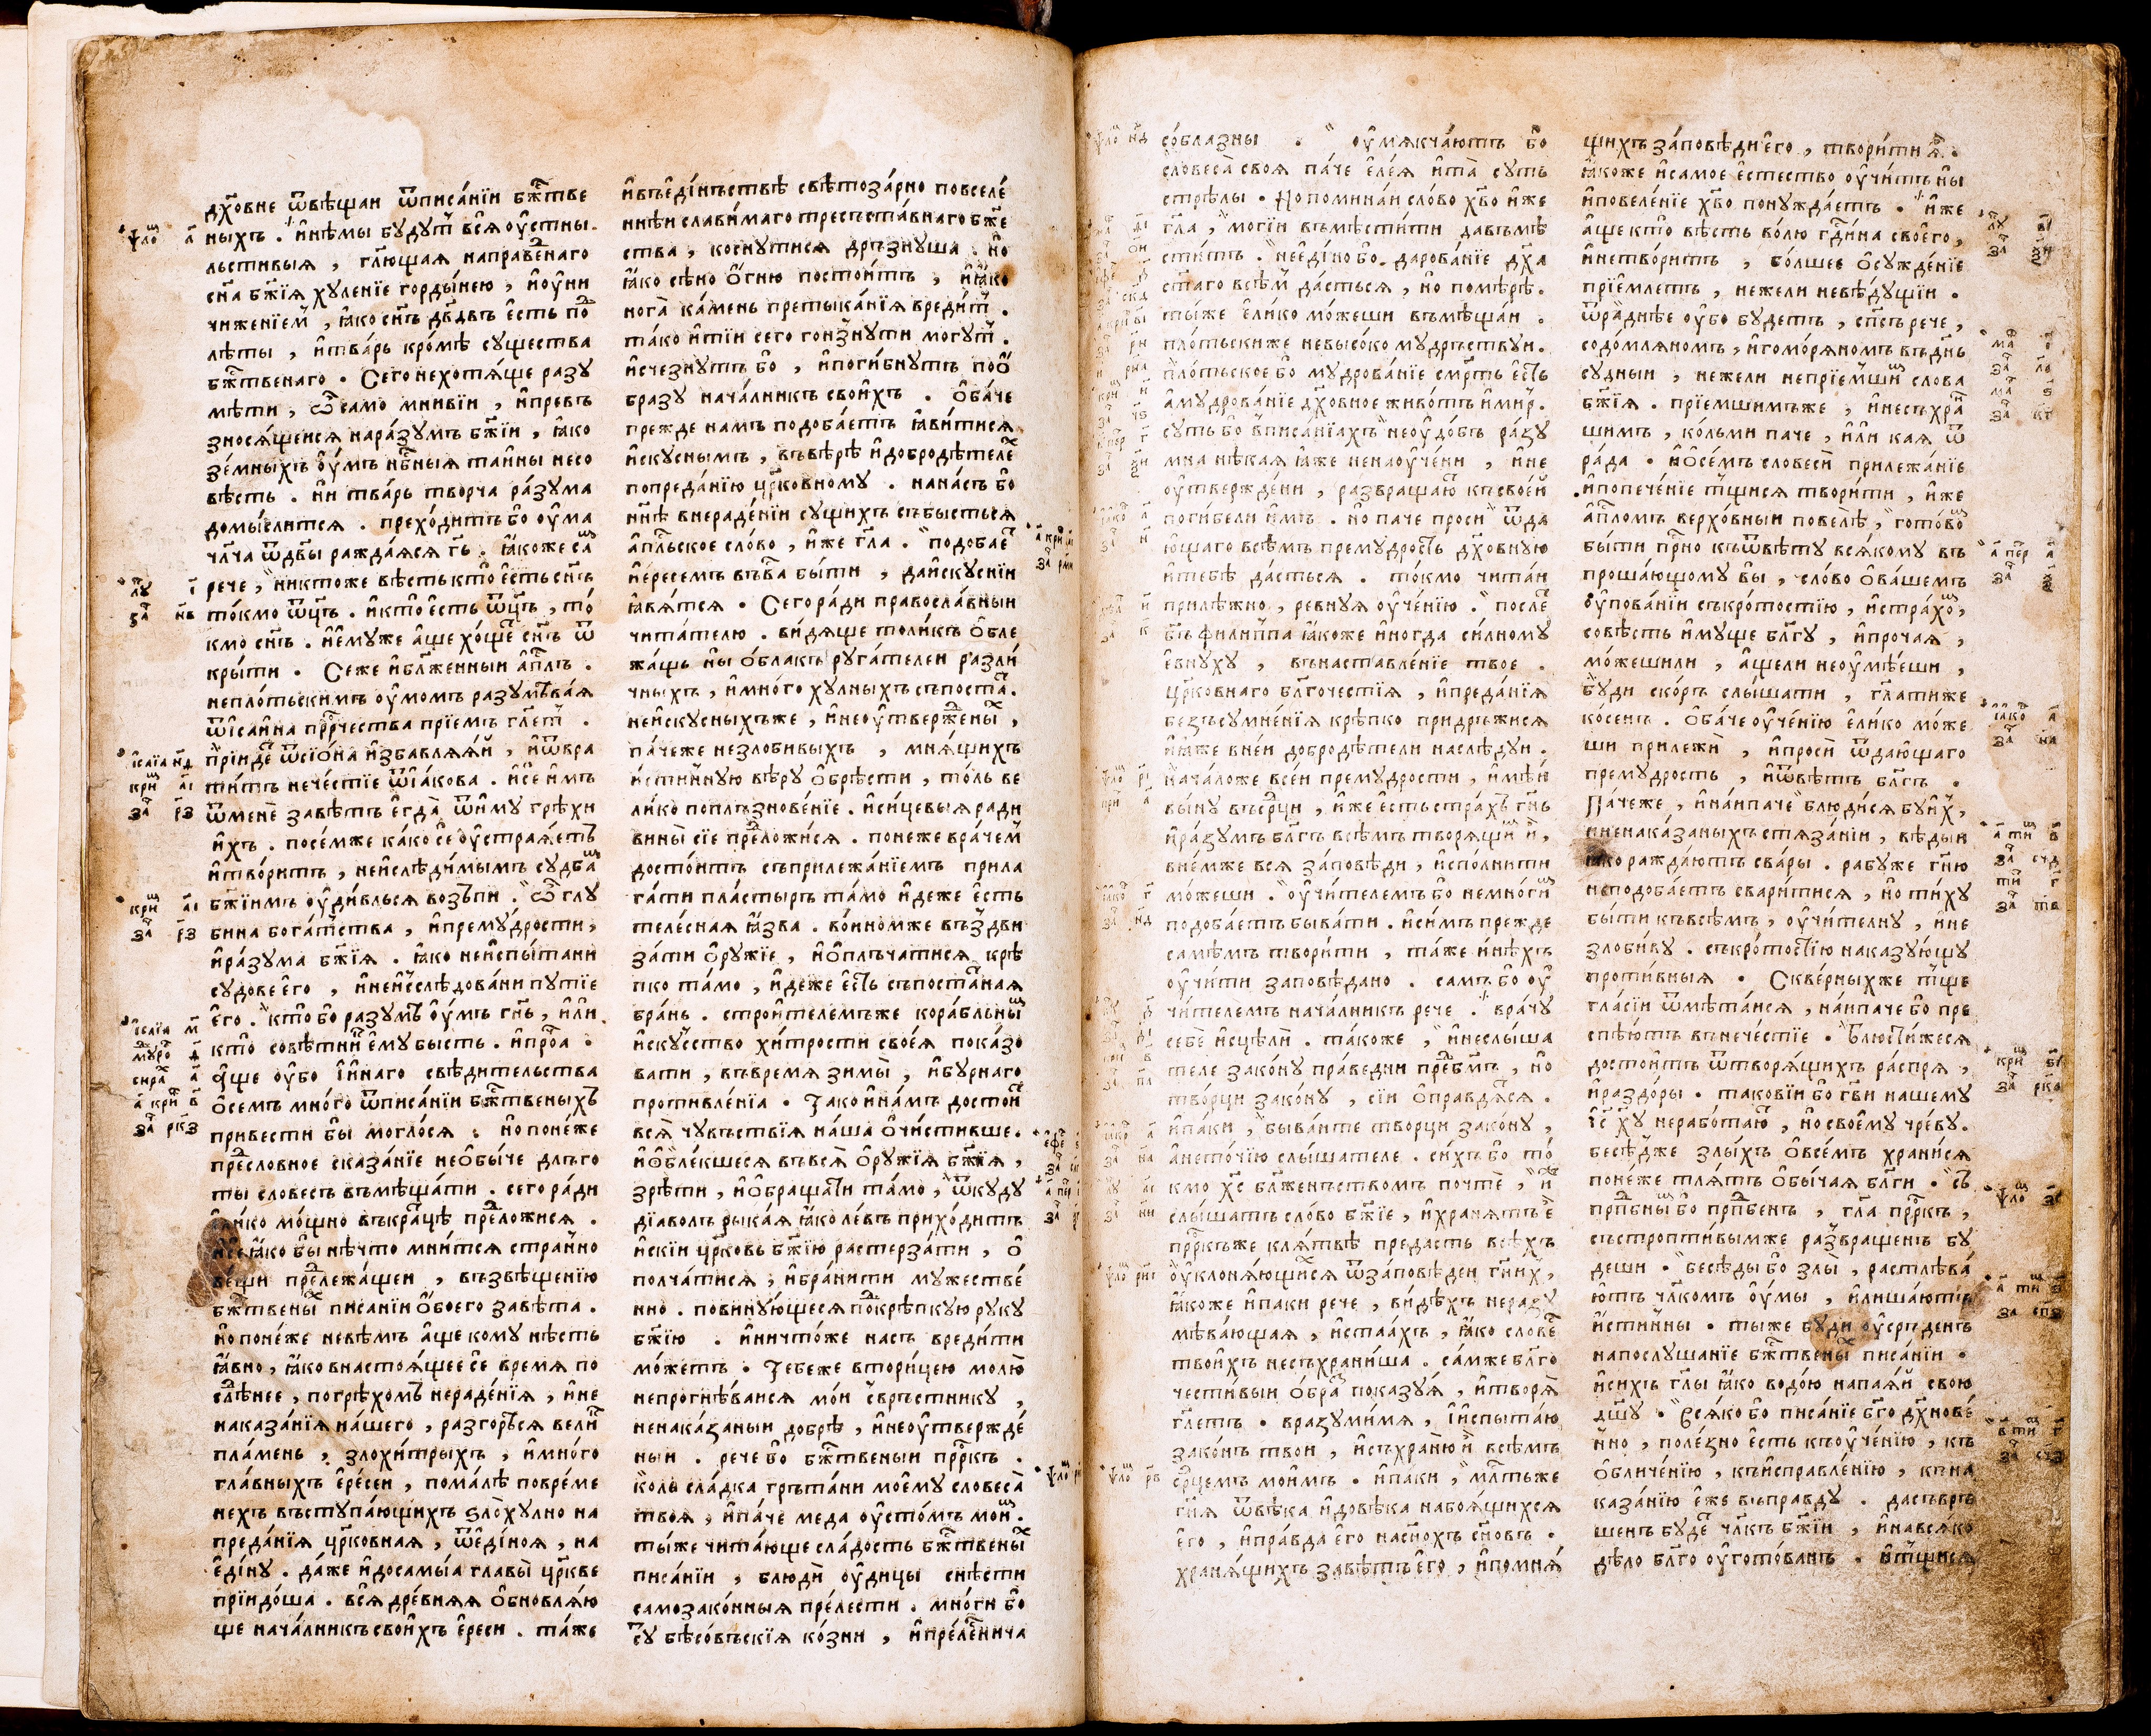 дх҃овне ѿвѣщаи ѿписа́нїи бж҃тве
ны́хъ . и҆нѣмы бу́дут всѧ оу҆стны̀
льсти́выѧ , гл҃ющаѧ направе́днаго
сн҃а бж҃їѧ хуле́нїе горды́нею , и҆оу҆ни
чиже́нїем , ꙗ҆́ко сн҃ъ дв҃двъ є҆сть по
лѣты , и҆тва́рь кро́мѣ существа
бж҃твенаго . Сего нехотѧ́ще разу
мѣти , ѿ само мни́вїи , и҆превъ
зносѧ́щеисѧ нара́зумъ бж҃їи , ꙗ҆́ко
зе́мныхъ оу҆́мъ нб҃ныѧ та́ины несо
вѣсть . ни тва́рь творча ра́зума
домы́слитсѧ . прехо́дитъ бо оу҆ма̀
чл҃ча ѿдв҃ы ражда́ѧсѧ гь҃ . ꙗ҆́коже са
рече , никто́же вѣсть кто̀ є҆́сть сн҃ъ
то́кмо ѿц҃ъ . и҆кто̀ є҆сть ѿц҃ъ , то́
кмо сн҃ъ . и҆є҆му́же а҆́ще хо́ще сн҃ъ ѿ
кры́ти . Сеже и҆бл҃же́нныи а҆п҃лъ .
непло́тьскимъ оу҆мо́мъ разумѣва́ѧ
ѿі҆са́ина прр҃чества прїе́мъ гл҃ет .
прїиде ѿсїо́на и҆збавлѧ́ѧи , и҆ѿвра
ти́тъ нече́стїе ѿі҆а́кова . и҆се и҆мъ
ѿменѐ завѣтъ є҆гда̀ ѿиму грѣхи
и҆хъ . посе́мже ка́ко сѐ оу҆страѧ́етъ
и҆тво́ритъ , неи҆слѣди́мымъ судба
бж҃їимъ оу҆ди́вльсѧ возъпи . Ѽ глу
бина бога́тства , и҆прему́дрости ,
и҆ра́зума бж҃їѧ . ꙗ҆́ко неи҆спы́тани
су́дове є҆го̀ , и҆неи҆слѣдо́вани путїе
є҆го̀ . кто̀ бо разумѣ̀ оу҆́мъ гн҃ь , и҆ли
кто̀ совѣтник є҆му бысть . и҆про́а :
А҆́ще оу҆́бо і҆и҆на́го свѣди́тельства
ѡ҆семъ мно́го ѿписа́нїи бж҃твены́хъ
привести бы могло́сѧ : но поне́же
предсло́вное сказа́нїе неѡ҆бы́че длъго
ты слове́съ въмѣща́ти . сего ра́ди
є҆ли́ко мо́щно въкра́цѣ предложи́сѧ .
и҆се ꙗ҆́ко бы нѣчто мни́тсѧ стра́нно
ве́щи предлежа́щеи , възвѣще́нїю
бж҃твены́х писа́нїи ѻ҆боего̀ завѣта .
но поне́же невѣмъ а҆ще кому нѣсть
ꙗ҆́вно , ꙗ҆́ко внастоѧ́щее сѐ время по
слѣднее , погрѣхо́мъ нераде́нїѧ , и҆не
наказа́нїѧ на́шего , разгорѣсѧ вели́
пла́мень , злохи́трыхъ , и҆мно́го
гла́вныхъ є҆ре́сеи , пома́лѣ повре́ме
нехъ въступа́ющихъ ѕло̀ху́лно на
преда́нїѧ цр҃ко́внаѧ , ѿє҆ди́ноѧ , на
є҆ди́ну . да́же и҆досамы́а главы̀ цр҃кве
прїидо́ша . всѧ дре́внѧѧ ѡ҆бновлѧ́ю
ще нача́лникъ свои́хъ є҆́реси . та́же
и҆въє҆ди́нъствѣ свѣтоза́рно повселе́
ннѣи слави́маго тресъста́внаго бж҃е
ства̀ , косну́тисѧ дръзну́ша . но
ꙗ҆́ко сѣно ѻ҆гню посто́итъ , и҆ꙗ҆́ко
нога̀ ка́мень претыка́нїѧ вреди́т .
та́ко и҆тїи сего гонзну́ти мо́гут .
и҆сче́знутъ бо , и҆поги́бнутъ поѻ҆́
бразу нача́лникъ свои́хъ . Ѻ҆ба́че
прежде намъ подоба́етъ ꙗ҆ви́тисѧ
и҆скуснымъ , въвѣрѣ и҆добродѣтеле
попреда́нїю цр҃ко́вному . нана́съ бо
нн҃ѣ внераде́нїи су́щихъ събы́стьсѧ
а҆п҃льское сло́во , и҆же гл҃а . подобае
и҆е́ресемъ въва́ бы́ти , даи҆ску́снїи
ꙗ҆вѧ́тсѧ . Сегора́ди правосла́вныи
чита́телю . ви́дѧще толи́къ ѻ҆бле
жа́щь ны ѻ҆́блакъ руга́телеи разли́
чныхъ , и҆мно́го ху́лныхъ съпоста̀ .
неи҆ску́сныхъже , и҆неоу҆твержены́х ,
па́чеже незлоби́выхъ , мнѧ́щихъ
и҆́стинную вѣру ѻ҆брѣсти , то́ль ве
ли́ко поплъзнове́нїе . и҆си́цевыѧ ради
вины̀ сїе предложи́сѧ . поне́же вра́чем
досто́итъ съприлежа́нїемъ прила
га́ти пла́стырь та́мо и҆деже є҆сть
теле́снаѧ ꙗ҆́зва . во́иномже въздви
за́ти ѻ҆ру́жїе , и҆ѻ҆плъча́тисѧ крѣ
пко та́мо , и҆де́же є҆́сть съпоста́тнаѧ
бра́нь . строи́телемъже кора́бльны́
и҆ску́сство хи́трости свое́ѧ показо
вати , въвремѧ зимы̀ , и҆бу́рнаго
противле́нїа . Та́ко и҆на́мъ достои́
всѧ̀ чувъствїѧ на́ша ѡ҆чи́стивше .
и҆ѻ҆бле́кшесѧ въвсѧ̀ ѻ҆ру́жїѧ бж҃їѧ ,
зрѣти , и҆ѻ҆браща́ти та́мо , ѿку́ду
дїа́волъ ры́каѧ ꙗ҆́ко ле́въ прихо́дитъ
и҆ски́и цр҃ковь бж҃їю растерза́ти , ѻ҆
полча́тисѧ , и҆бра́нити му́жестве́
нно . повину́ющесѧ подкрѣпкую руку
бж҃їю . и҆ничто́же насъ вреди́ти
мо́жетъ . Тебе́же втори́цею молю̀
непрогнѣ́ваисѧ мо́и свръ́стнику ,
ненака́занныи добрѣ , и҆неоу҆твержде́
ныи . рече бо бж҃твеныи прр҃къ .
ко́ль сла́дка гръта́ни моему словеса̀
твоѧ̀ , и҆па́че меда оу҆сто́мъ мои́м .
ты́же чита́юще сла́дость бж҃твены́х
писа́нїи , блюдѝ оу҆́дицы снѣсти
самозако́нныѧ пре́лести . мно́ги бо
су́ бѣсо́въскїѧ ко́зни , и҆пре́лщенича
со́блазны . оу҆мѧкча́ютъ бо
словеса̀ своѧ па́че є҆ле́ѧ и҆та̀ суть
стрѣлы . Но помина́и сло́во хв҃о и҆же
гл҃а , моги́и въмѣсти́ти давъмѣ
сти́тъ . неє҆ди́но бо . дарова́нїе дх҃а
ст҃аго всѣм да́стьсѧ , но помѣрѣ .
ты́же є҆ли́ко мо́жеши въмѣща́и .
пло́тьскиже невысо́ко мудръствуи .
пло́тьское бо мудрова́нїе смр҃ть є҆сть
а҆мудрова́нїе дх҃о́вное живо́тъ и҆ми́р .
су́ть бо вписа́нїахъ неоу҆до́бъ ра́зу
мна нѣкаѧ ꙗ҆́же ненаоу҆че́ни , и҆не
оу҆твержде́ни , развраща́ю къ свое́и
поги́бели и҆мъ . но паче проси ѿда
ю҆щаго всѣмъ прему́дрость дх҃о́вную
и҆тебѣ да́стьсѧ . то́кмо чита́и
прилѣжно , ревну́ѧ оу҆че́нїю . после
бъ҃ фили́ппа ꙗ҆́коже и҆ногда си́лному
є҆вну́ху , внаставле́нїе твое .
цр҃ко́внаго бл҃гоче́стїѧ , и҆преда́нїѧ
безъсумне́нїѧ крѣпко придръжи́сѧ
и҆ꙗ҆́же вне́и добродѣтели наслѣдуи .
нача́ложе все́и прему́дрости , и҆мѣи
вы́ну въср҃ци , и҆же є҆сть стра́хъ гн҃ь
и҆ра́зумъ бл҃гъ всѣмъ творѧ́щим и҆ ,
вне́мже всѧ за́повѣди , и҆спо́лнити
мо́жеши . оу҆чи́телемъ бо немно́гим
подоба́етъ быва́ти . и҆си́мъ прежде
самѣмъ твори́ти , та́же и҆нѣхъ
оу҆чи́ти заповѣдано . самъ бо оу҆
чи́телемъ нача́лникъ рече . врачу̀
себѐ и҆сцѣли . та́коже , и҆неслы́ша
теле зако́ну пра́ведни пред бг҃мъ , но
тво́рци зако́ну , сїи ѡ҆правдѧ́сѧ .
и҆па́ки , быва́ите тво́рци зако́ну ,
а҆нето́чїю слы́шателе . си́хъ бо то́
кмо хс҃ бл҃же́нъствомъ почтѐ , и҆
слы́шатъ сло́во бж҃їе , и҆хранѧ́тъ є҆
прр҃къже клѧ́твѣ предасть всѣхъ
оу҆клонѧ́ющихсѧ ѿза́повѣдеи гн҃их ,
ꙗ҆́коже и҆паки рече , ви́дѣхъ неразу
мѣва́ющаѧ , и҆ста́ахъ , ꙗ҆́ко слове
твои́хъ несъхрани́ша . са́мже бл҃го
чести́выи ѻ҆́бра показу́ѧ , и҆творѧ̀
гл҃етъ . вразуми́мѧ , і҆и҆спыта́ю
зако́нъ тво́и , и҆съхраню̀ и҆ всѣмъ
ср҃цемъ мои́мъ . и҆па́ки , мл҃тьже
гн҃ѧ ѿвѣка и҆довѣка набоѧ́щихсѧ
є҆го̀ , и҆пра́вда є҆го̀ насн҃охъ сн҃овъ .
хранѧ́щихъ завѣтъ є҆го̀ , и҆помнѧ́
щихъ за́повѣди є҆го̀ , твори́ти ѧ҆ .
ꙗ҆́коже и҆само́е є҆стество̀ оу҆чи́тъ ны
и҆повеле́нїе хв҃о понужда́етъ . и҆же
а҆́ще кто̀ вѣсть во́лю гд҃и́на своего̀ ,
и҆нетво́ритъ , бо́лшее ѡ҆сужде́нїе
прїе́млетъ , не́жели невѣдущїи .
ѿра́днѣе оу҆бо будетъ , сп҃съ рече ,
содо́млѧномъ , и҆гомо́рѧномъ въ дн҃ь
су́дныи , не́жели непрїе́мшим слова
бж҃їѧ . прїе́мшимъже , и҆несъхра
шимъ , ко́льми паче , и҆ли каѧ ѿ
ра́да . и҆ѡ҆се́мъ словесѝ прилежа́нїе
и҆попече́нїе тщи́сѧ твори́ти , и҆же
а҆п҃ломъ верхо́вным повелѣ , гото́вом
бы́ти прн҃о къѿвѣту всѧ́кому въ
проша́ющому вы , сло́во ѡ҆ва́шемъ
оу҆пова́нїи съкро́тостїю , и҆стра́хом ,
со́вѣсть и҆му́ще бл҃гу , и҆про́чаѧ ,
мо́жешили , а҆́щели неоу҆мѣ́еши ,
бу́ди ско́ръ слы́шати , гл҃атиже
ко́сенъ . Ѻ҆ба́че оу҆че́нїю є҆ли́ко може
ши прилежѝ , и҆просѝ ѿдаю́щаго
прему́дрость , и҆ѿвѣтъ бл҃гъ .
Па́чеже , и҆наипаче блюди́сѧ бу́их ,
и҆ненака́заныхъ стѧза́нїи , вѣдыи
ꙗ҆́ко ражда́ютъ сва́ры . рабу́же гн҃ю
неподоба́етъ свари́тисѧ , но ти́ху
бы́ти къвсѣмъ , оу҆чи́телну , и҆не
злоби́ву . съкро́тостїю наказу́ющу
проти́вныѧ . Скве́рныхже тще
гла́сїи ѿмѣта́исѧ , на́ипаче бо пре
спѣютъ внече́стїе . Блюсти́жесѧ
досто́итъ ѿтворѧ́щихъ ра́спрѧ ,
и҆раздо́ры . такові́и бо гв҃и нашему
і҆с҃ ху҃ нерабо́таю , но своєму чре́ву .
бесѣ́дже злы́хъ ѡ҆всѣ́мъ храни́сѧ
поне́же тлѧ́тъ ѻ҆бы́чаѧ бл҃ги . съ
прп҃бным бо прп҃бенъ , гл҃а прр҃къ ,
състропти́вымже развраще́нъ бу
деши . бесѣ́ды бо злы , растлѣва́
ютъ чл҃комъ оу҆мы̀ , и҆лиша́ютъ
и҆́стинны . ты́же бу́ди оу҆се́рденъ
напослу́шанїе бж҃твены́х писа́нїи .
и҆си́хъ гл҃ы ꙗ҆́ко водо́ю напаѧ́и свою
дш҃у . Всѧ́ко бо писа́нїе бг҃о дх҃нове́
нно , поле́зно є҆сть къоу҆че́нїю , къ
ѡ҆бличе́нїю , къи҆справле́нїю , къна
каза́нїю є҆же въпра́вду . дасъвръ
ше́нъ бу́де чл҃къ бж҃їи , и҆навсѧ́ко
дѣло бл҃го оу҆гото́ванъ . и҆тщи́сѧ